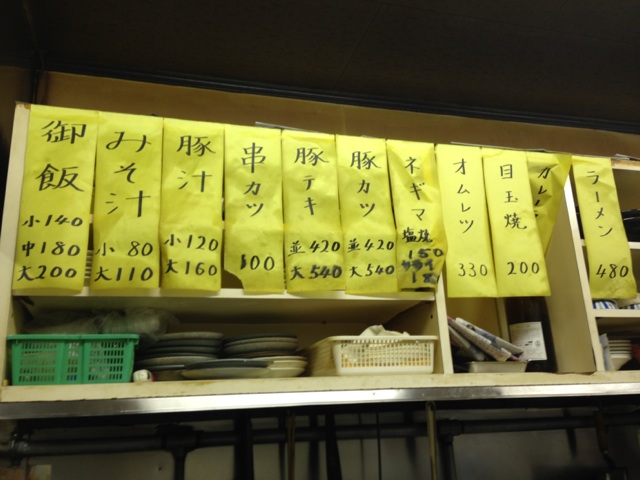 御飯
小140
中180
大200
みそ汁
小80
大110
豚汁
小120
大160
串カツ
100
豚テキ
並420
大540
豚カツ
並420
大540
ネギマ
塩焼
150
オムレツ
330
目玉焼
200
カレー
ラーメン
480